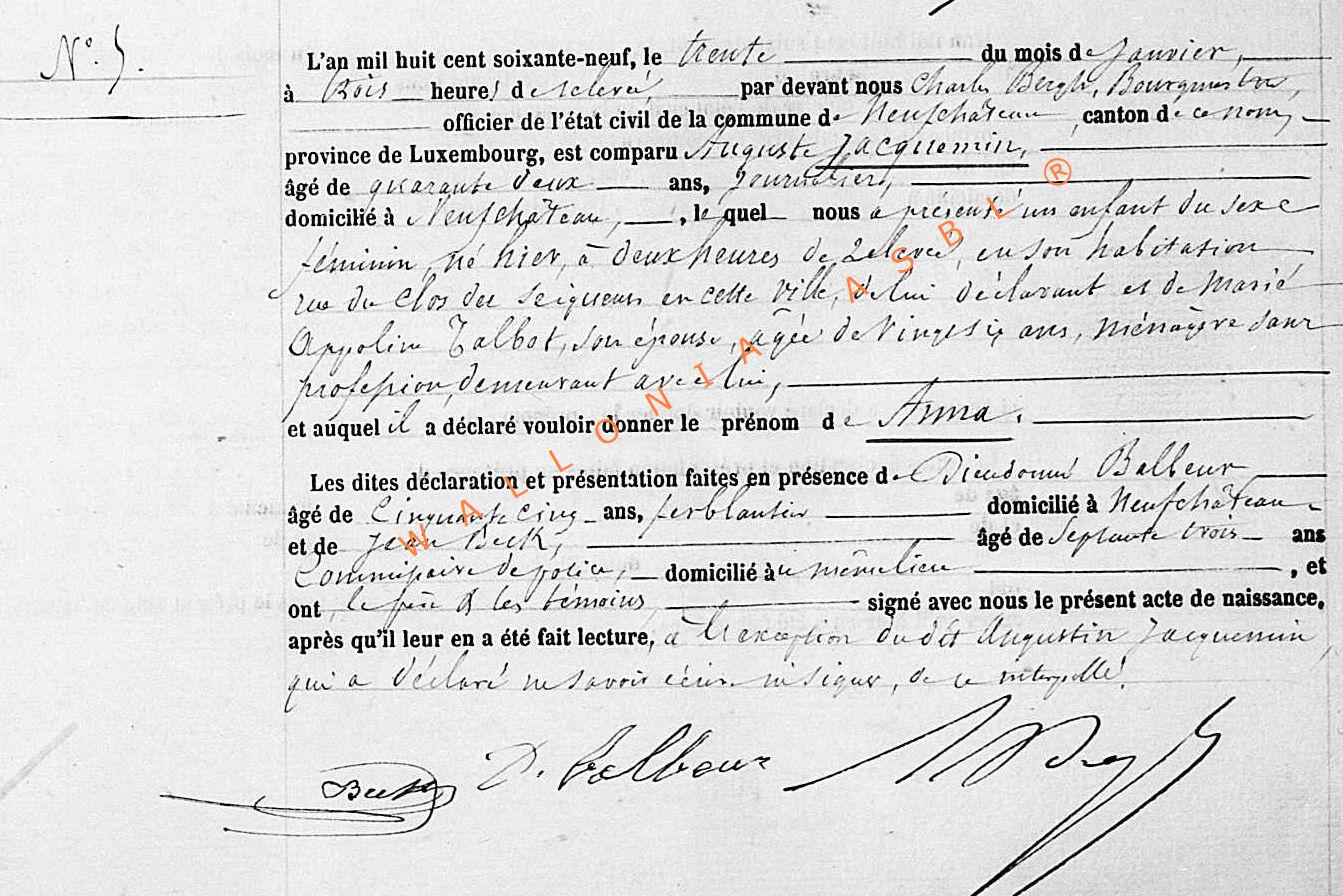 N° 5.
L'an mil huit cent soixante-neuf, le trente du mois de Janvier,
à trois heures de relevée, par devant nous Charles Bergh, Bourgmestre,
officier de l'état civil de la commune de Neufchâteau, canton de ce nom,
province de Luxembourg, est comparu Auguste Jacquemin,
âgé de quarante deux ans, Journalier,
domicilié à Neufchâteau, , lequel nous a présenté un enfant du sexe
féminin, né hier, à deux heures de relevée, en son habitation
rue du Clos des Seigneurs en cette ville, de lui déclarant et de Marie
Appoline Talbot, son épouse, âgée de vingt six ans, ménagère sans
profession, demeurant avec lui,
et auquel il a déclaré vouloir donner le prénom de Anna.
Les dites déclaration et présentation faites en présence de Dieudonné Balbeur
âgé de Cinquante cinq ans, ferblantier domicilié à Neufchâteau
et de Jean Beck, âgé de septante trois ans
Commissaire de police, domicilié au même lieu , et
ont, le père & les témoins, signé avec nous le présent acte de naissance,
après qu'il leur en a été fait lecture, à l'exception du dit Augustin Jacquemin,
qui a déclaré ne savoir écrire ni signer, de ce interpellé.
Beck D. Balbeur
WALLONIA ASBL ®